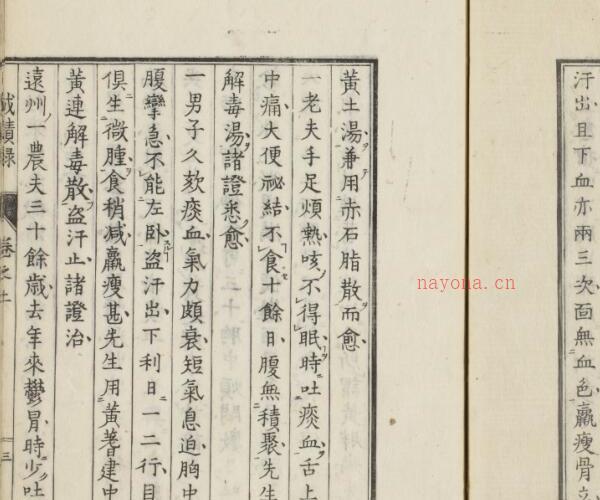 汗出且下血亦兩三次面無血色羸瘦骨立
黃土湯兼用赤石脂散而愈
一老夫手足煩熱咳不得眠時吐痰血舌上
中痛大便祕結不食十餘日腹無積聚先生
解毒湯諸證悉愈
一男子久欬痰血氣力頗衰短氣息迫胸中
腹攣急不能左臥盜汗出下利日一二行目
俱生微腫食稍減羸瘦甚先生用黃蓍建中
黃連解毒散盜汗止諸證治
遠州一農夫三十餘歲去年來鬱冒時少吐
成績錄 卷之上 三
nayona.cn